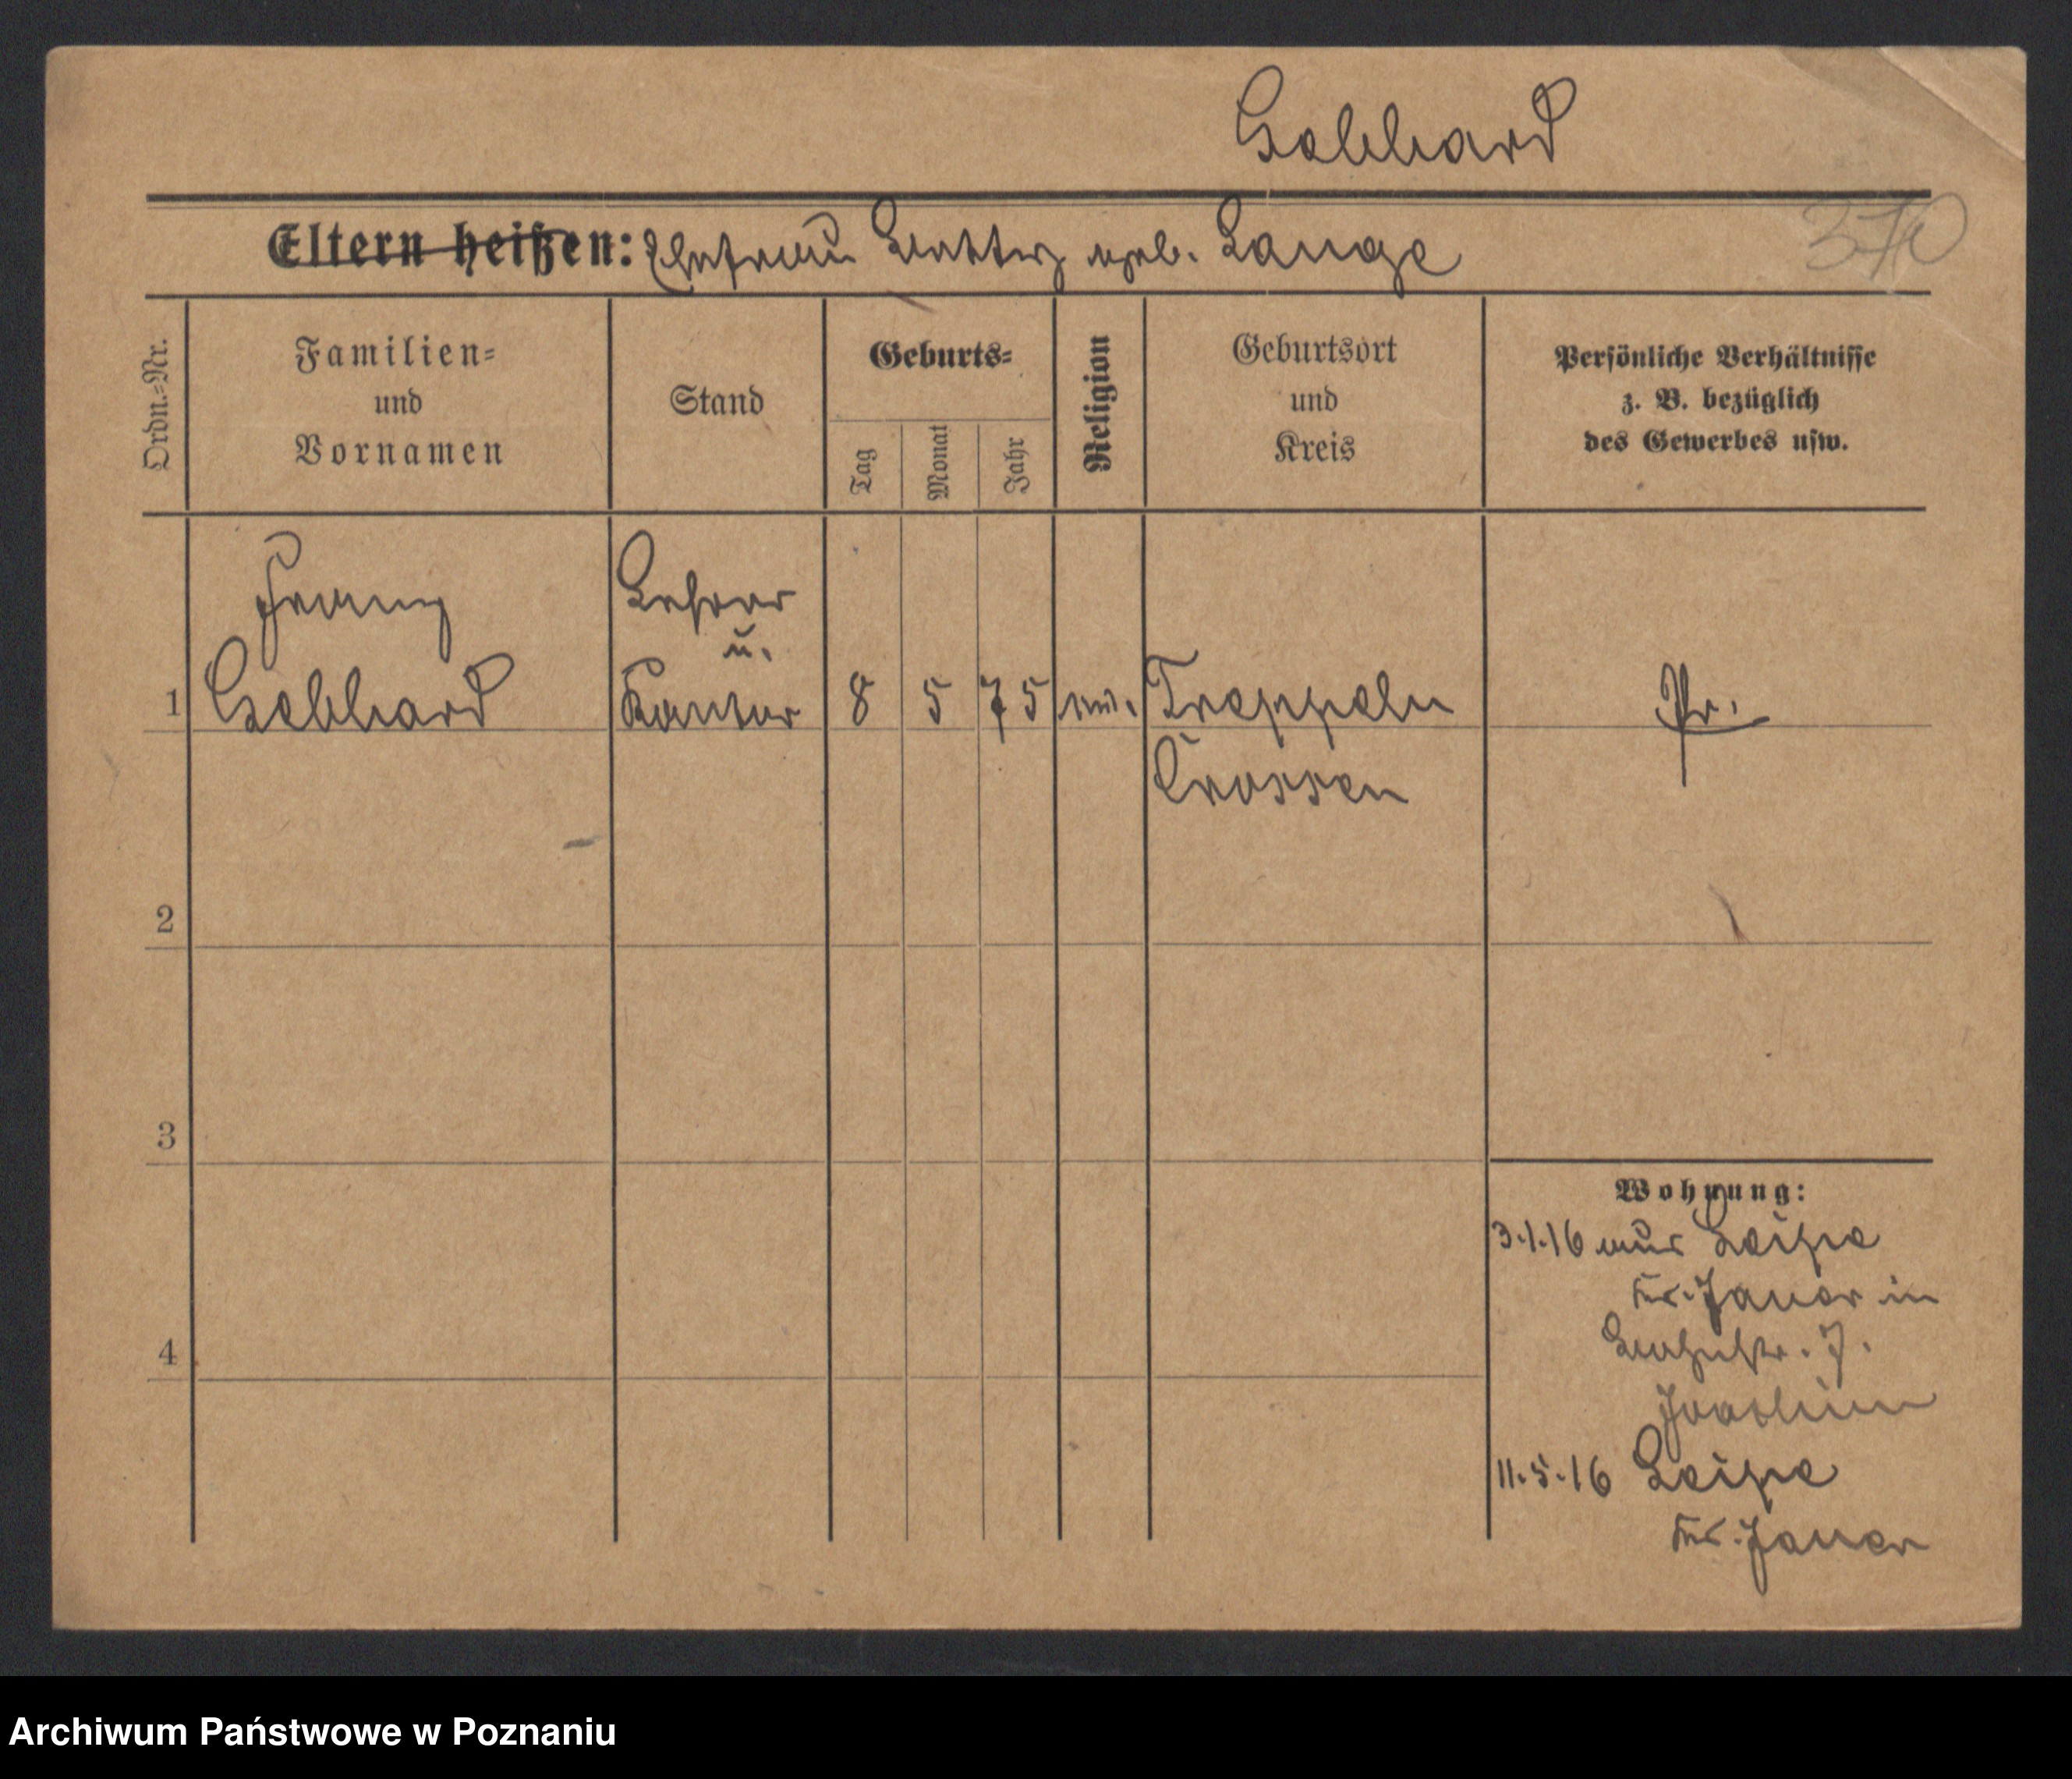 Gebhard
Eltern heißen: Ehefrau Hattwig geb. Lange
370
Ordn.=Nr.
Familien=
und
Vornamen
Stand
Geburts=
Tag
Monat
Jahr
Religion
Geburtsort
und
Kreis
Persönliche Verhältnisse
z. B. bezüglich
des Gewerbes usw.
Franz Lehrer
u.
1 Gebhard Kantor 8 5 75 ev. Treppeln Pr.
Crossen
2
3
Wohnung:
3.1.16 aus Leipe
Kr. Jauer in
7.
Joachim
4
11.5.16 Leipe
Kr. Jauer
Archiwum Państwowe w Poznaniu